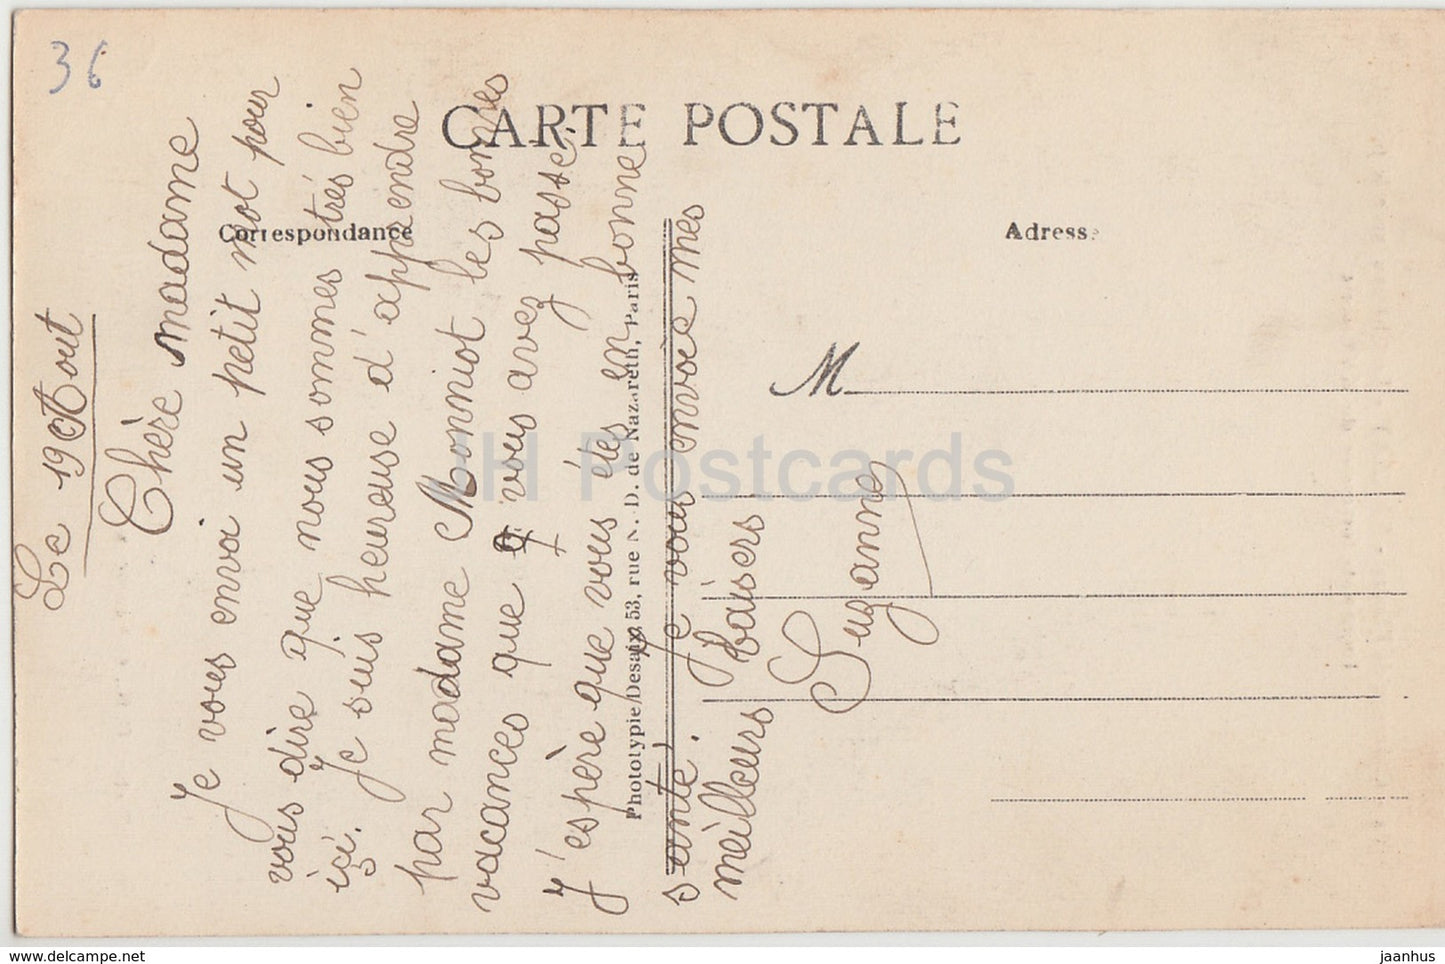 36
CARTE POSTALE
Correspondance
Adresse
Le 19 Aout
Chère madame
Je vous envoi un petit mot pour
vous dire que nous sommes très bien
içi. Je suis heureuse d'apprendre
par madame Monniot les bonnes
vacances que vous avez passe
J'espère que vous étes en bonne
santé. Je vous envoie mes
meilleurs baisers
Suzanne
M
Phototypie Desaix, 53, rue N.-D. de Nazareth, Paris
JH Postcards
www.delcampe.net
jaanhus